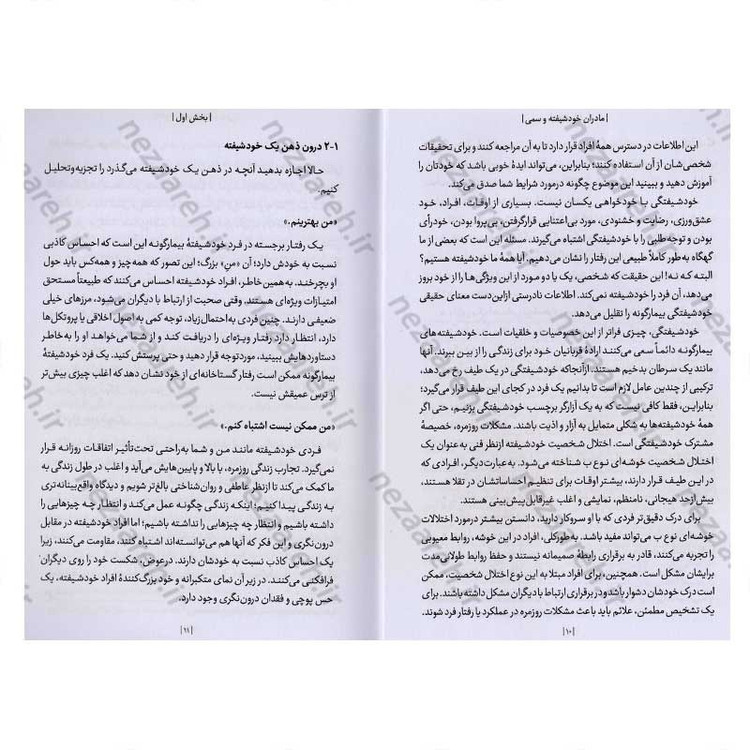 | مادران خودشیفته و سمی |
این اطلاعات در دسترس همهٔ افراد قرار دارد تا به آن مراجعه کنند و برای تحقیقات
شخصی‌شان از آن استفاده کنند؛ بنابراین، می‌تواند ایدهٔ خوبی باشد که خودتان را
آموزش دهید و ببینید این موضوع چگونه درمورد شرایط شما صدق می‌کند.
خودشیفتگی با خودخواهی یکسان نیست. بسیاری از اوقات، افراد، خود
عشق‌ورزی، رضایت و خشنودی، مورد بی‌اعتنایی قرارگرفتن، بی‌پروا بودن، خودرأی
بودن و توجه‌طلبی را با خودشیفتگی اشتباه می‌گیرند. مسئله این است که بعضی از ما
گهگاه به‌طور کاملاً طبیعی این رفتار را نشان می‌دهیم. آیا همهٔ ما خودشیفته هستیم؟
البته که نه! این حقیقت که شخصی، یک یا دو مورد از این ویژگی‌ها را از خود بروز
می‌دهد، آن فرد را خودشیفته نمی‌کند. اطلاعات نادرستی ازاین‌دست معنای حقیقی
خودشیفتگی بیمارگونه را تقلیل می‌دهد.
خودشیفتگی، چیزی فراتر از این خصوصیات و خلقیات است. خودشیفته‌های
بیمارگونه دائماً سعی می‌کنند ارادهٔ قربانیان خود برای زندگی را از بین ببرند. آنها
مانند یک سرطان بدخیم هستند. ازآنجاکه خودشیفتگی در یک طیف رخ می‌دهد،
ترکیبی از چندین عامل لازم است تا بدانیم یک فرد در کجای این طیف قرار می‌گیرد؛
بنابراین، فقط کافی نیست که به یک آزارگر برچسب خودشیفتگی بزنیم، حتی اگر
همهٔ خودشیفته‌ها به شکلی متمایل به آزار و اذیت باشند. مشکلات روزمره، خصیصهٔ
مشترک خودشیفتگی است. اختلال شخصیت خودشیفته ازنظر فنی به‌عنوان یک
اختلال شخصیت خوشه‌ای نوع ب شناخته می‌شود. به‌عبارت‌دیگر، افرادی که
در این طیف قرار دارند، بیشتر اوقات برای تنظیم احساساتشان در تقلا هستند،
بیش‌ازحد هیجانی، نامنظم، نمایشی و اغلب غیرقابل‌پیش‌بینی هستند.
برای درک دقیق‌تر فردی که با او سروکار دارید، دانستن بیشتر درمورد اختلالات
خوشه‌ای نوع ب می‌تواند مفید باشد. به‌طورکلی، افراد در این خوشه، روابط معیوبی
را تجربه می‌کنند، قادر به برقراری رابطهٔ صمیمانه نیستند و حفظ روابط طولانی‌مدت
برایشان مشکل است. همچنین، برای افراد مبتلا به این نوع اختلال شخصیت، ممکن
است درک خودشان دشوار باشد و در برقراری ارتباط با دیگران مشکل داشته باشند. برای
یک تشخیص مطمئن، علائم باید باعث مشکلات روزمره در عملکرد یا رفتار فرد شوند.
| ۱۰ |
| بخش اول |
۲-۱ درون ذهن یک خودشیفته
حالا اجازه بدهید آنچه در ذهن یک خودشیفته می‌گذرد را تجزیه‌وتحلیل
کنیم
«من بهترینم.»
یک رفتار برجسته در فرد خودشیفتهٔ بیمارگونه این است که احساس کاذبی
نسبت به خودش دارد؛ آن «منِ» بزرگ؛ این تصور که همه‌چیز و همه‌کس باید حول
او بچرخند. به همین خاطر، افراد خودشیفته احساس می‌کنند که طبیعتاً مستحق
امتیازات ویژه‌ای هستند. وقتی صحبت از ارتباط با دیگران می‌شود، مرزهای خیلی
ضعیفی دارند. چنین فردی به‌احتمال‌زیاد، توجه کمی به اصول اخلاقی یا پروتکل‌ها
دارد، انتظار دارد رفتار ویژه‌ای را دریافت کند و از شما می‌خواهد او را به‌خاطر
دستاوردهایش ببینید، موردتوجه قرار دهید و حتی پرستش کنید. یک فرد خودشیفتهٔ
بیمارگونه ممکن است رفتار گستاخانه‌ای از خود نشان دهد که اغلب چیزی بیش‌تر
از ترس عمیقش نیست.
«من ممکن نیست اشتباه کنم.»
فردی خودشیفته مانند من و شما به‌راحتی تحت‌تأثیر اتفاقات روزانه قرار
نمی‌گیرد. تجارب زندگی روزمره، با بالا و پایین‌هایش می‌آید و اغلب در طول زندگی به
ما کمک می‌کند تا ازنظر عاطفی و روان‌شناختی بالغ‌تر شویم و دیدگاه واقع‌بینانه‌تری
به زندگی پیدا کنیم؛ اینکه زندگی چگونه عمل می‌کند و انتظار چه چیزهایی را
داشته باشیم و انتظار چه چیزهایی را نداشته باشیم؛ اما افراد خودشیفته در مقابل
درون‌نگری و این فکر که آنها هم می‌توانسته‌اند اشتباه کنند، مقاومت می‌کنند، زیرا
یک احساس کاذب نسبت به خودشان دارند. درعوض، شکست خود را روی دیگران
فرافکنی می‌کنند. در زیر آن نمای متکبرانه و خودبزرگ‌کنندهٔ افراد خودشیفته، یک
حس پوچی و فقدان درون‌نگری وجود دارد.
| ۱۱ |
nezaareh.ir